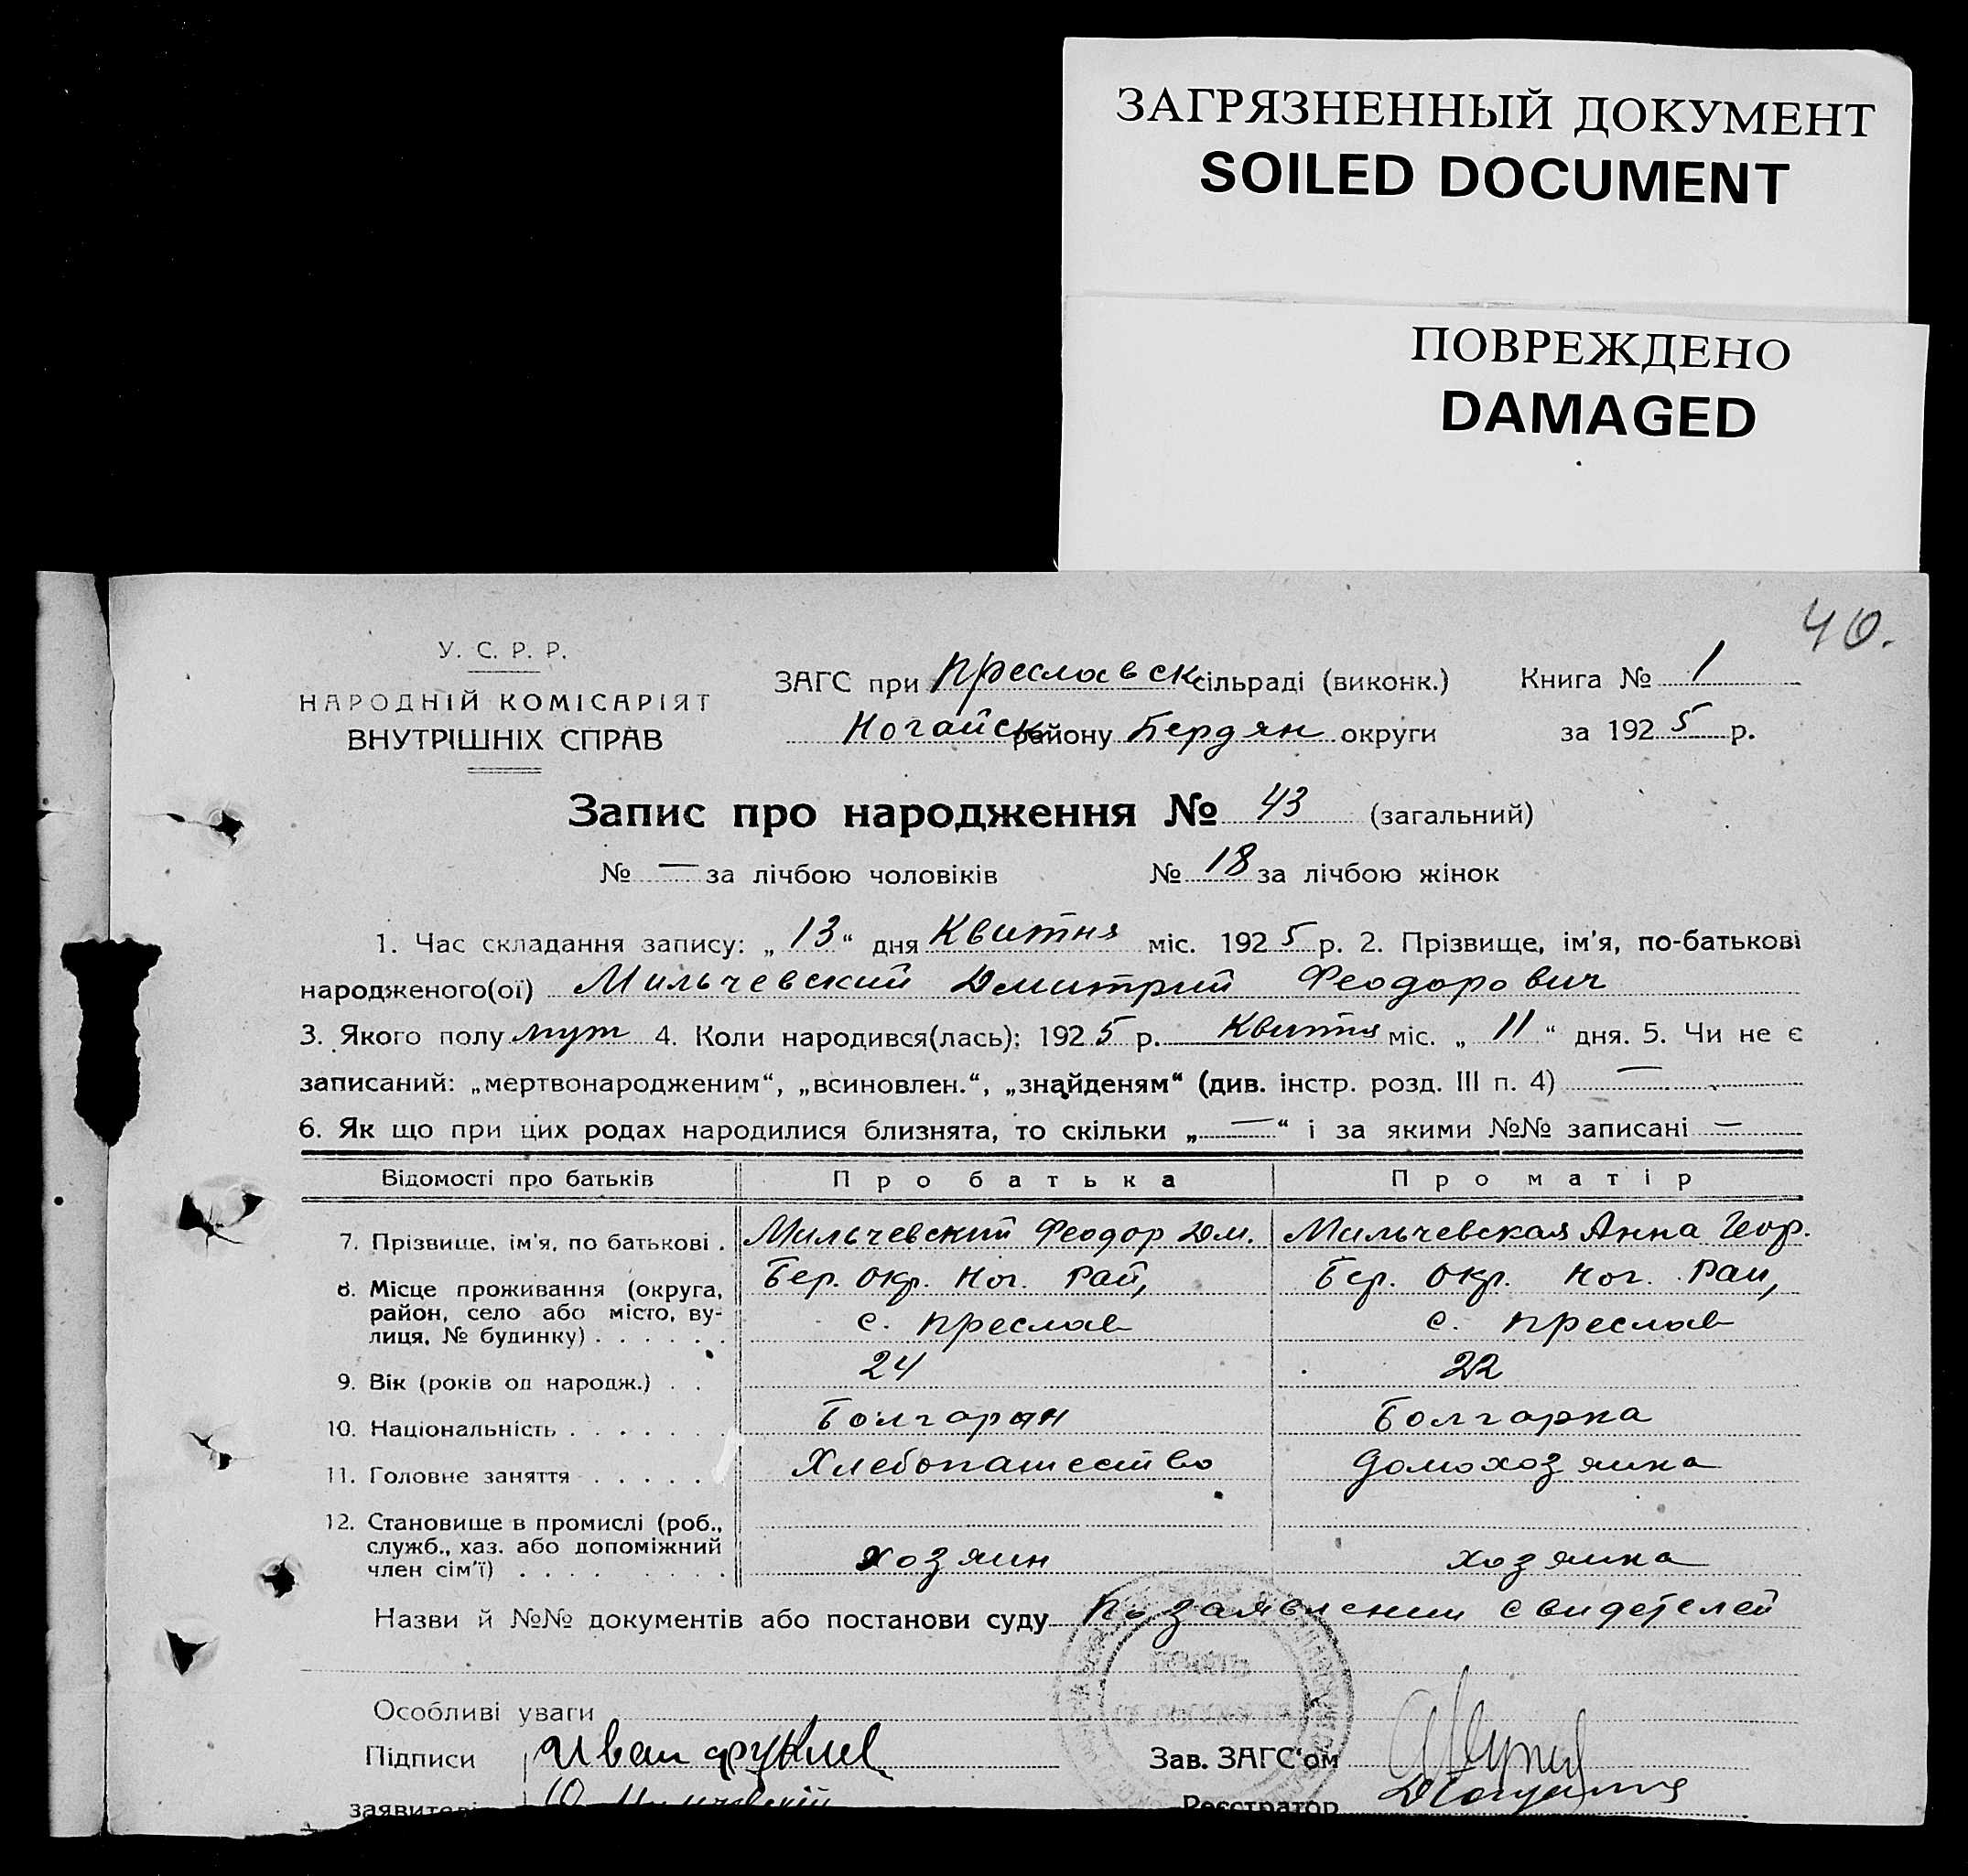 ЗАГРЯЗНЕННЫЙ ДОКУМЕНТ
SOILED DOCUMENT
ПОВРЕЖДЕНО
DAMAGED
40.
У. С. Р. Р.
НАРОДНІЙ КОМІСАРІЯТ
ВНУТРІШНІХ СПРАВ
ЗАГС при Преславск сільраді (виконк.) Книга № 1
Ногайск району Бердян округи за 1925 р.
Запис про народження № 43 (загальний)
№ — за лічбою чоловіків № 18 за лічбою жінок
1. Час складання запису: „13“ дня Квитня міс. 1925 р. 2. Прізвище, ім'я, по-батькові
народженого(ої) Мильчевский Дмитрий Феодорович
3. Якого полу муж 4. Коли народився(лась): 1925 р. Квитня міс. „11“ дня. 5. Чи не є
записаний: „мертвонародженим“, „всиновлен.“, „знайденям“ (див. інстр. розд. III п. 4) —
6. Як що при цих родах народилися близнята, то скільки „—“ і за якими №№ записані —
Відомості про батьків Про батька Про матір
7. Прізвище, ім'я, по батькові . Мильчевский Феодор Дм. Мильчевская Анна Геор.
8. Місце проживання (округа, район, село або місто, вулиця, № будинку) . . . . . . Бер. Окр. Ног. Рай, Бер. Окр. Ног. Рай,
с. Преслав с. Преслав
9. Вік (років од народж.) . . 24 22
10. Національність . . . . . . . Болгарин Болгарка
11. Головне заняття . . . . . Хлебопашество Домохозяйка
12. Становище в промислі (роб., служб., хаз. або допоміжний член сім'ї) . . . . . . . . . хозяин хозяйка
Назви й №№ документів або постанови суду По заявлении свидетелей
Особливі уваги
Підписи Иван Зав. ЗАГС'ом
заявителі Реєстратор